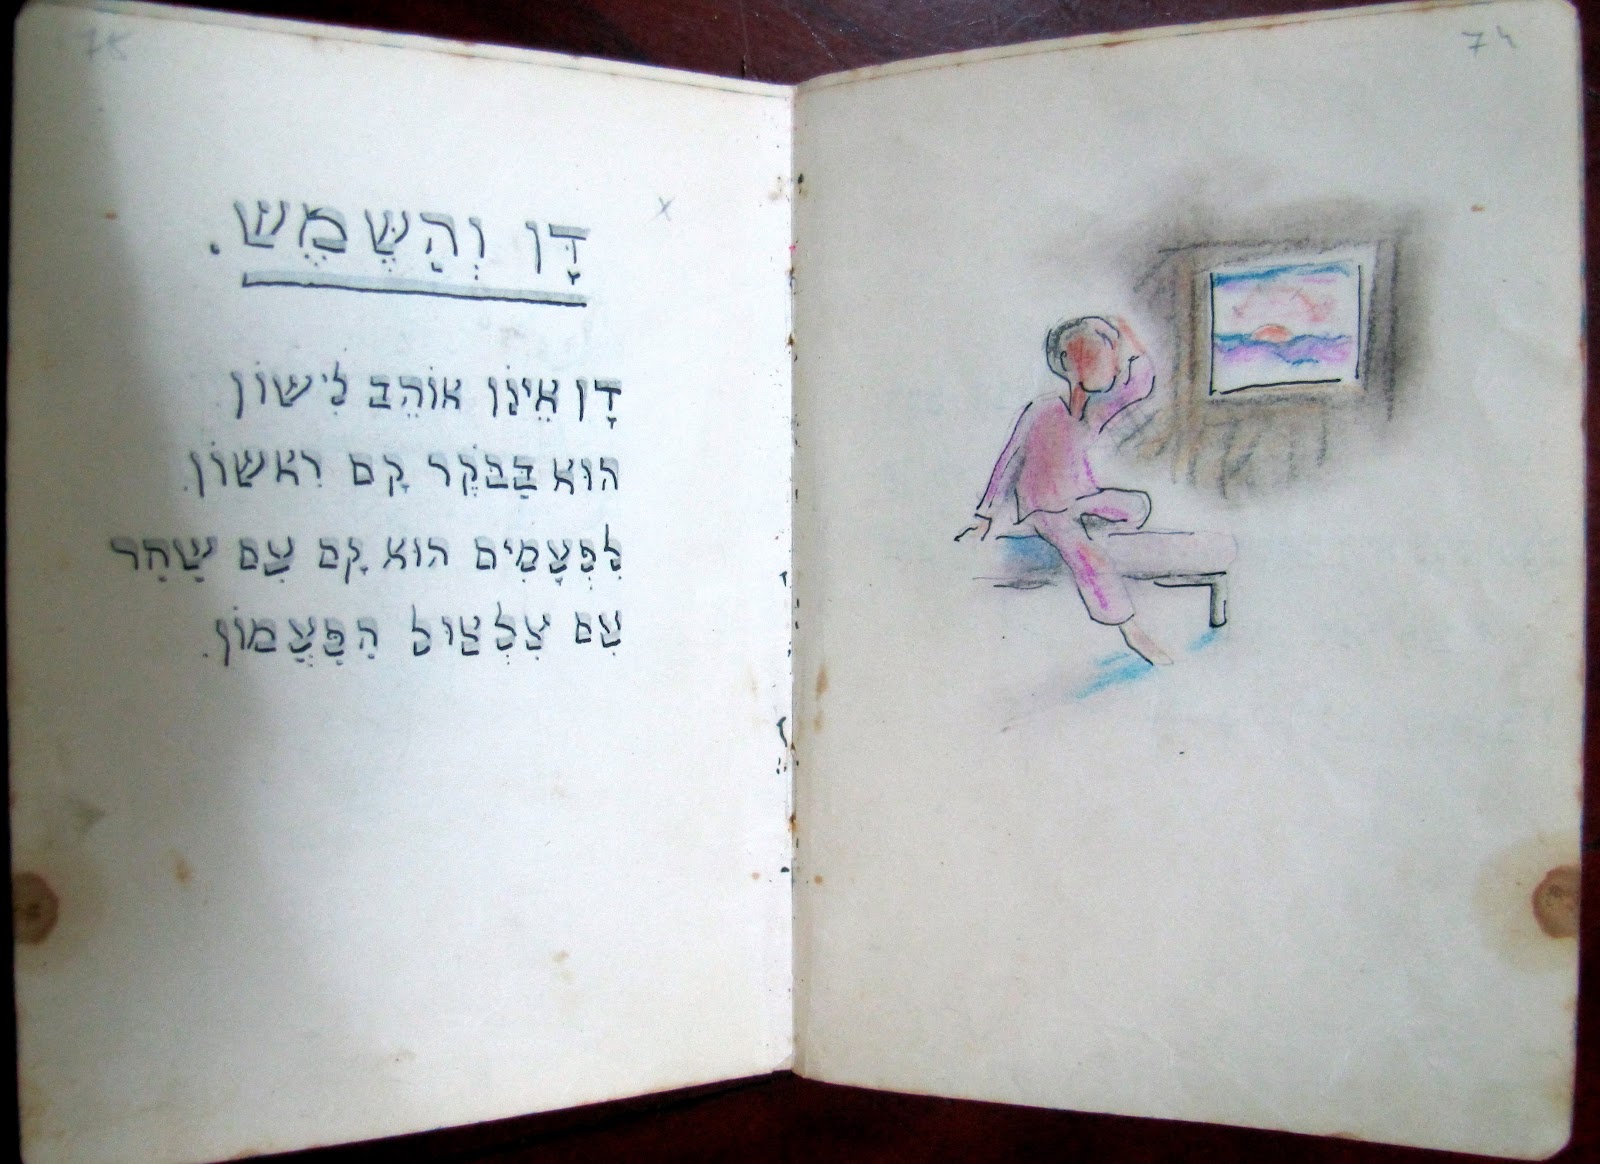 74
75
x
דָּן וְהַשֶּׁמֶשׁ.
דָּן אֵינוֹ אוֹהֵב לִישׁוֹן
הוּא בַּבֹּקֶר קָם רִאשׁוֹן.
לִפְעָמִים הוּא קָם עִם שַׁחַר
עִם צִלְצוּל הַפַּעֲמוֹן.